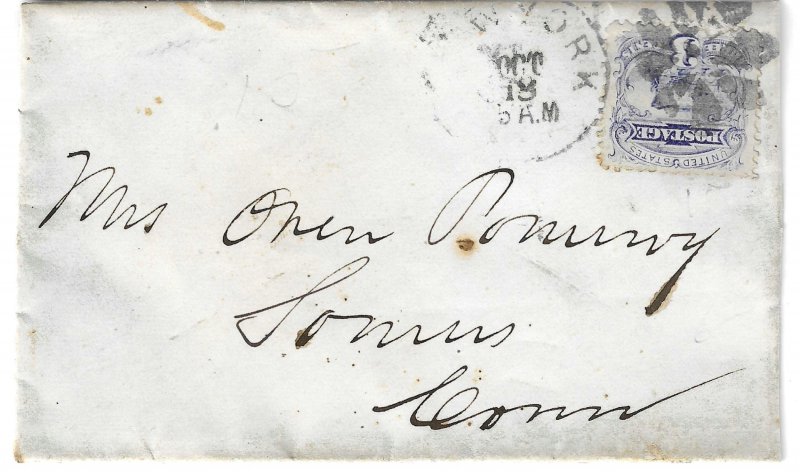 NEW YORK
OCT
18
5 A.M
3
POSTAGE
UNITED STATES
Mrs Owen Pomeroy
Somers
Conn